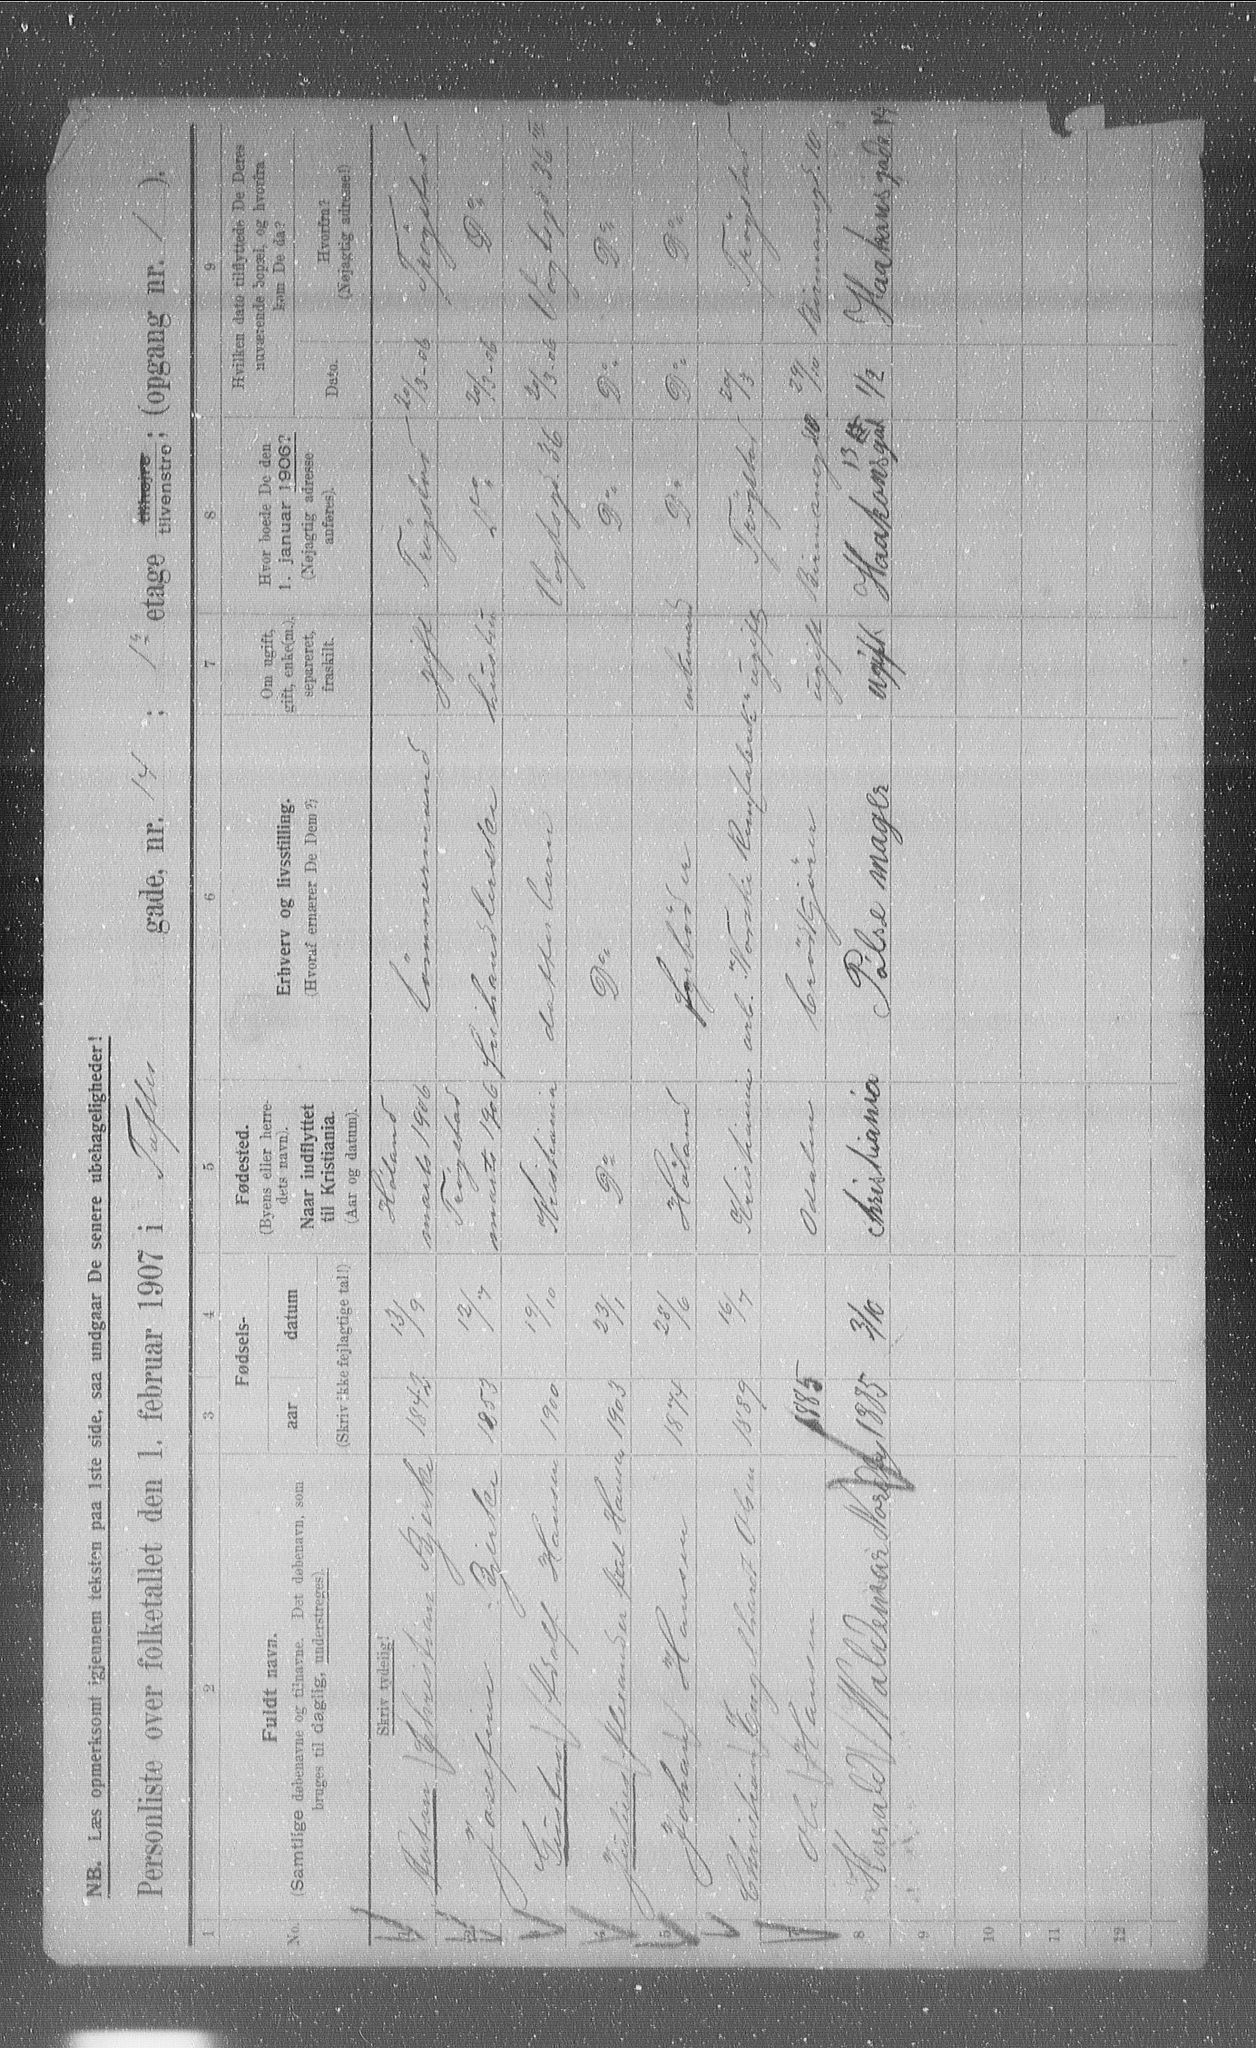 NB. Læs opmerksomt igjennem teksten paa 1ste side, saa undgaar De senere ubehageligheder!
Personliste over folketallet den 1. februar 1907 i Tøftes gade, nr. 14 ; 1ste etage tilhøjre tilvenstre; (opgang nr. 1 ).
1 2 3 4 5 6 7 8 9
No. Fuldt navn. (Samtlige døbenavne og tilnavne. Det døbenavn, som bruges til daglig, understreges).
Fødsels- aar datum (Skriv ikke fejlagtige tal!)
Fødested. (Byens eller herredets navn). Naar indflyttet til Kristiania. (Aar og datum).
Erhverv og livsstilling. (Hvoraf ernærer De Dem?)
Om ugift, gift, enke(m.), separeret, fraskilt.
Hvor boede De den 1. januar 1906? (Nøjagtig adresse anføres).
Hvilken dato tilflyttede De Deres nuværende bopæl, og hvorfra kom De da?
Dato. Hvorfra? (Nøjagtig adresse!)
Skriv tydelig!
1 Christian Bjerke 1842 13/9 Høland marts 1906 tømmermand gift Trøgstad 20/3-06 Trøgstad
2 Josefine Bjerke 1853 12/7 Trøgstad marts 1906 hustru Do 20/3-06 Do
3 Gustav Adolf Hansen 1900 19/10 Kristiania datterbarn Vogtsgd 36 20/3-06 Vogtsgd. 36 III
4 Hansen 1903 23/1 Do Do Do Do Do
5 Johan Hansen 1874 28/6 Høland enkemand Do Do Do
6 Christian Engelhart Olsen 1889 16/7 Kristiania arb. Norske ugift Trøgstad 20/3 Trøgstad
7 Ole Hansen 1885 Odalen ugift 29/10
8 Harald Waldemar 1885 3/10 Christiania Pølse mager ugift Haakonsgad 13 1/2 Haakonsgade 14
9
10
11
12